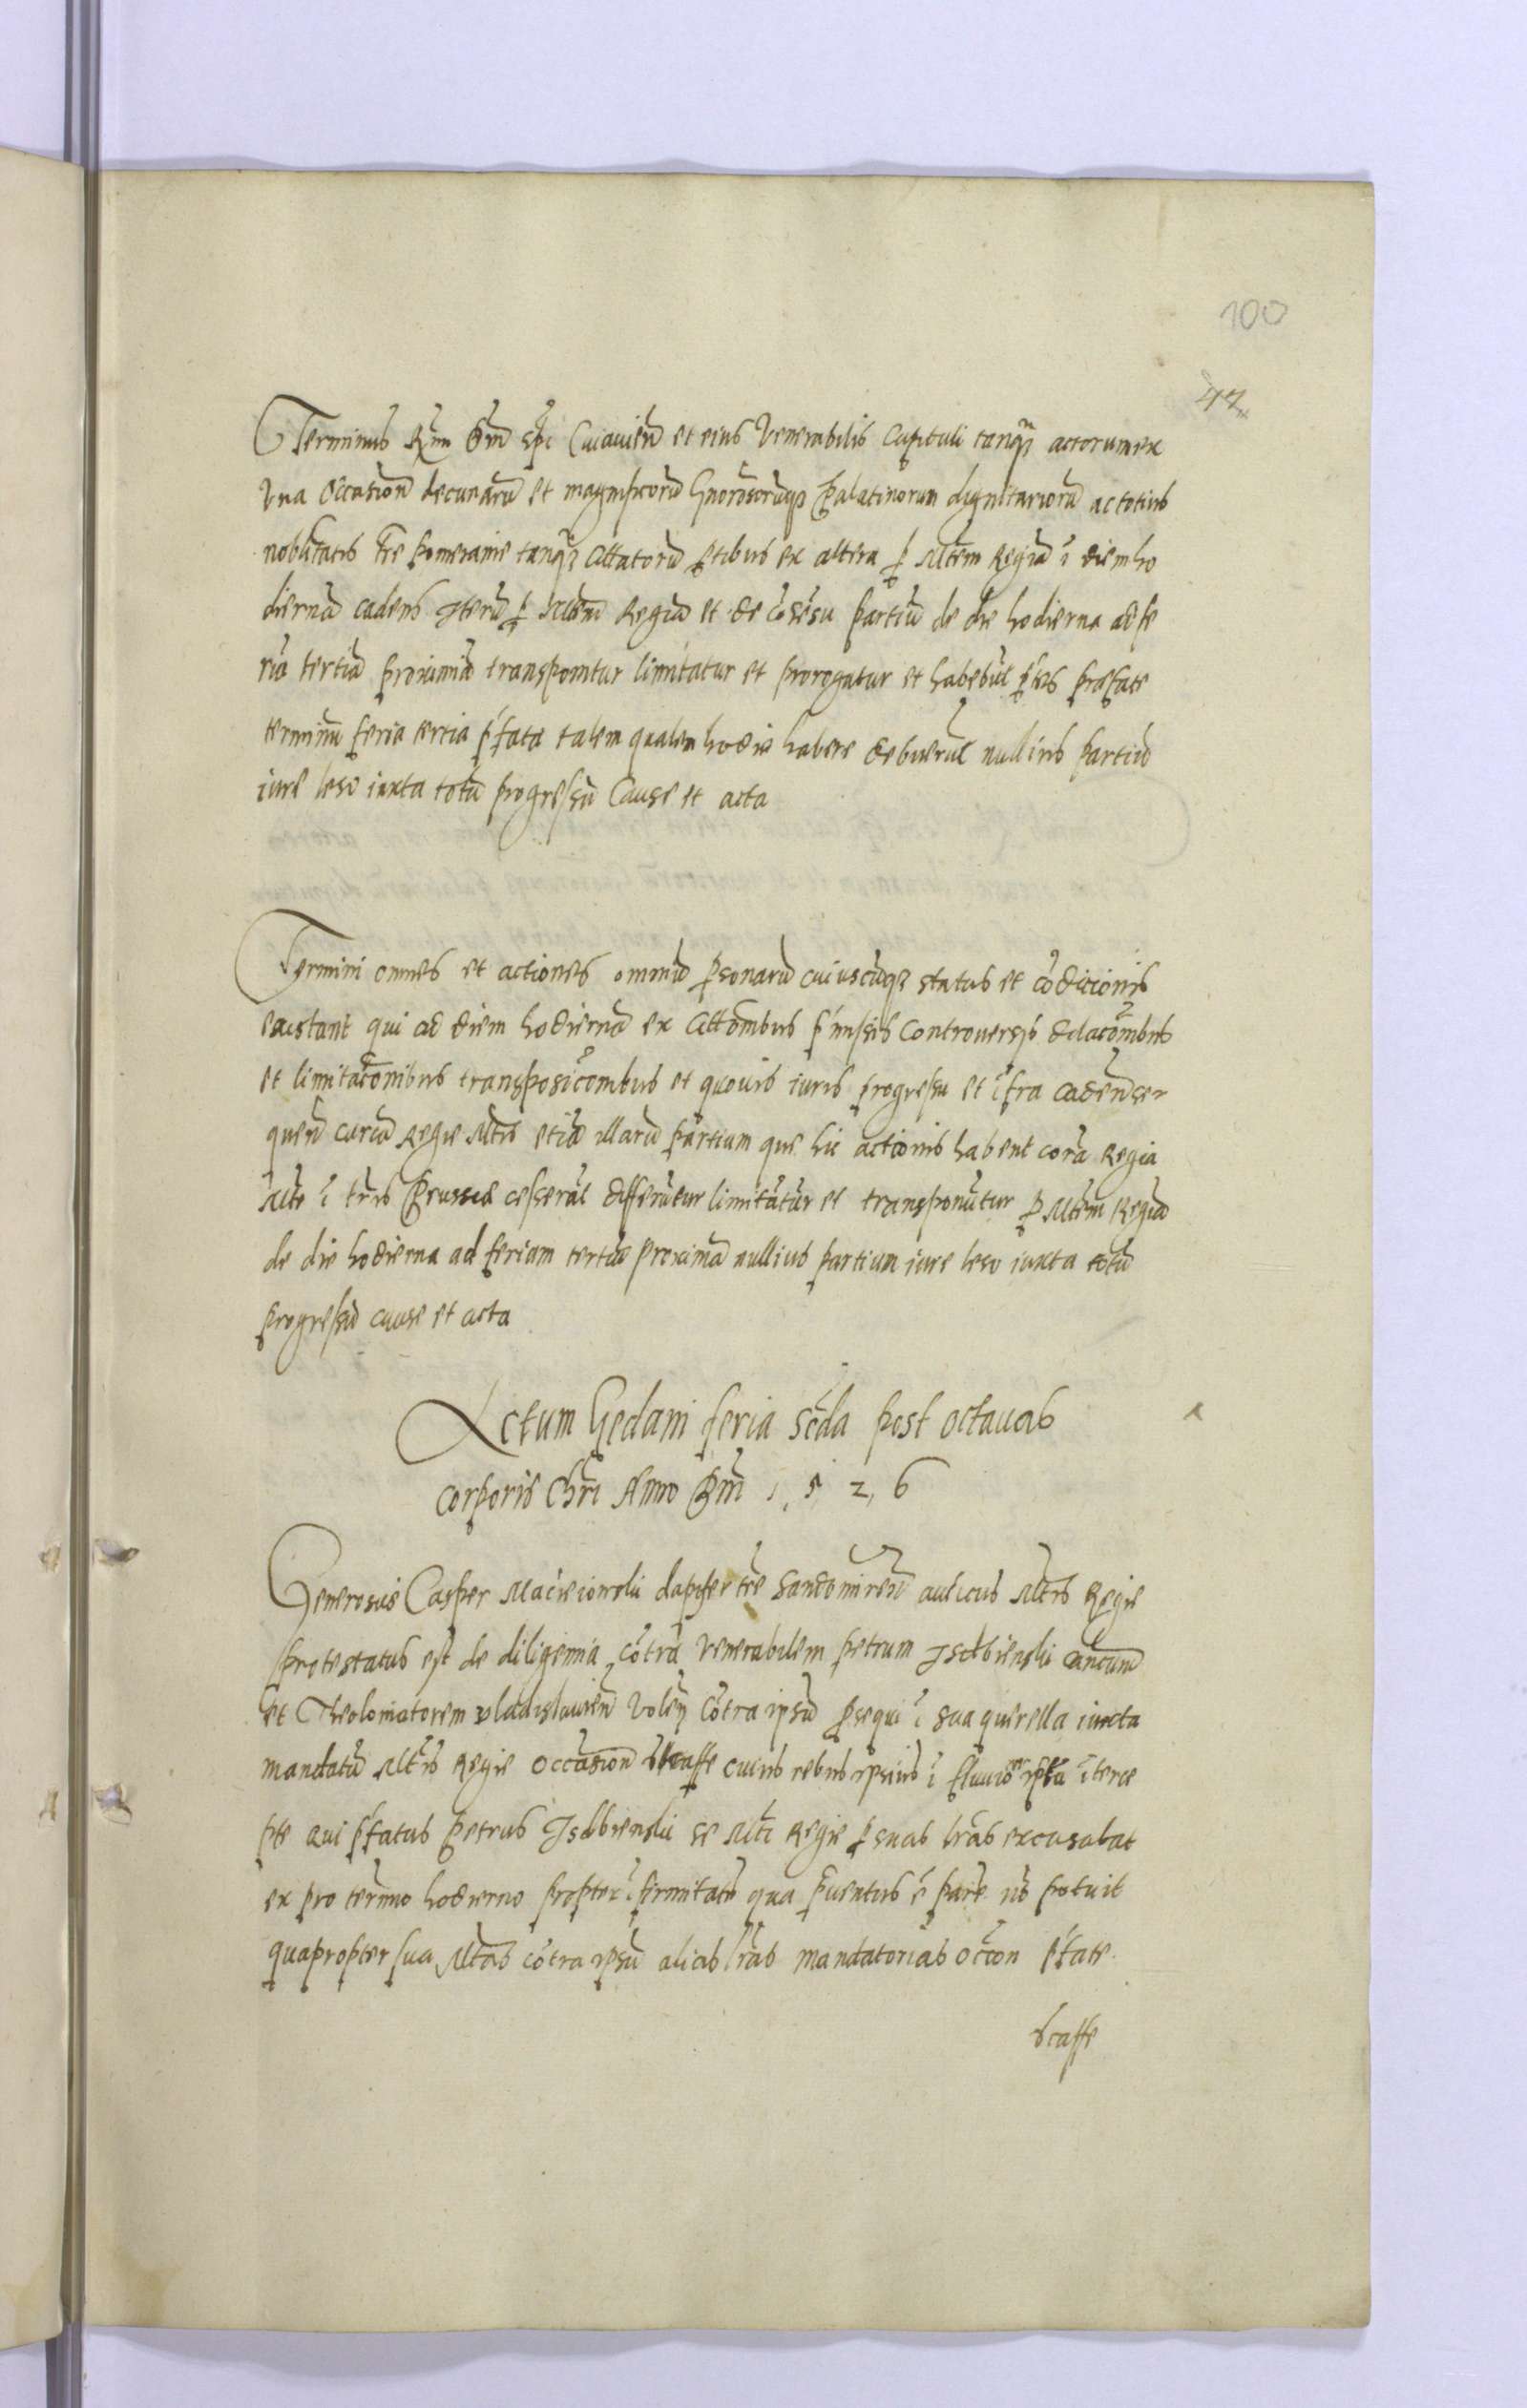 100
44
Terminus Rm̄i Dn̄i Epī Cuiauien̄ et eius Venerabilis Capituli tanq̄ȝ actorum ex
Vna Occasion̄ decimarū et magnificorū Gn̄orosorūqȝ Palatinorum dignitariorū ac totius
nobilitatis tr̄e Pomeranie tanq̄ȝ Citatorū ꝑtibus ex altera ꝑ Mtem̄ Regiā ī diem ho
diernā cadens Iterū ꝑ Mtem̄ Regiā et de cōsēsu partiū de die hodierna ad fe
riā tertiā proximā transponitur limitatur et prorogatur et habebūt ꝑtes prefate
terminū feria tertia p̄fata talem qualem hodie habere debuerūt nullius partiū
iure leso iuxta totū progressū Cause et acta
Termini omnes et actiones omniū ꝑsonarū cuiuscūqȝ status et cōdicionis
existant qui ad diem hodiernā ex Citōnibus p̄missis Controuersijs dilatōnibus
et limitatōnibus transposicōnibus et quouis iuris progressu et īfra caden̄ se
quen̄ curiā Regie Mtis etiā illarū partium que hic actionis habent corā Regia
Mte ī tr̄is Prussie cesserāt differūtur limitātur et transponūtur ꝑ Mtem̄ Regiā
de die hodierna ad feriam tertiā proximā nullius partium iure leso iuxta totū
progressū cause et acta
Actum Gedani feria Scd̄a post octauas
corporis Chri̅ Anno Dn̄i 1526
Generosus Casper Macieiowski dapifer tr̄e Sandomiren̄ aulicus Mtis Regie
protestatus est de diligentia cōtra Venerabilem Petrum Isdbienski Canōcum
et Theolonatorem Vladislauien̄ Volen̄ cōtra ipsū ꝓsequi ī sua querella iuxta
mandatū Mtis Regie Occasion̄ scaffe cuius rebus ipsius ī fluuio īterce
pte qui p̄fatus Petrus Isdbienski se Mti Regie ꝑ suas lr̄as excusabat
ex pro termīo hodierno propter īfirmitatē qua p̄uentus ē parere nō potuit
quapropter sua Mtas cōtra ipsū alias lr̄as mandatorias occōn p̄fate
scaffe